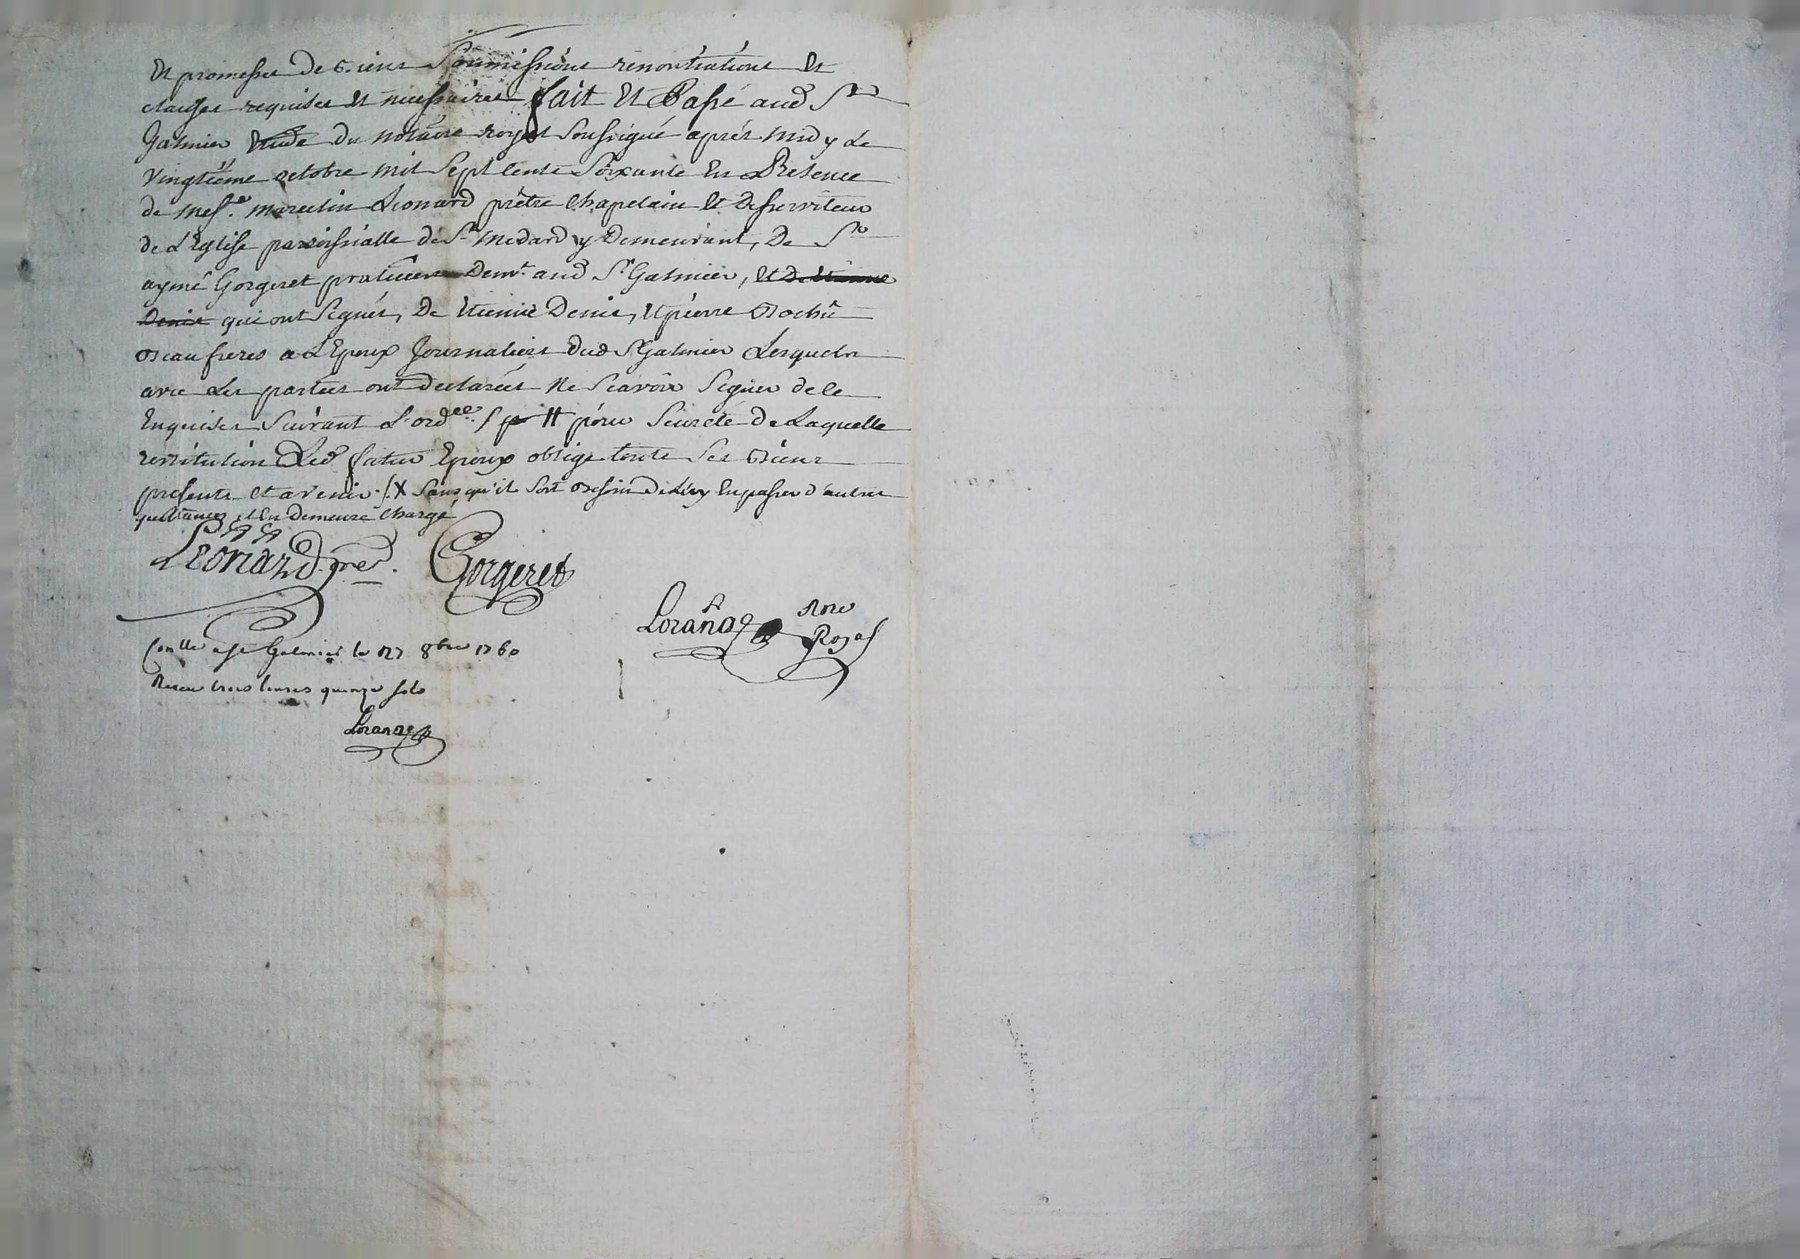 Et promesses de biens Soumissions renontiations Et
clauses requises Et necessaires fait Et Passé aud St
Galmier Etude du notaire Royal Soussigué après midy Le
vingtième octobre mil Sept Cents Soixante En Présence
de mesre marcelin Leonard prêtre Chapelain Et desserviteur
de L'Eglise paroissialle de St medard y Demeurant, De Sr
aymé Gorgeret praticien Demt aud St Galmier, Et De Etienne
Denis qui ont Signés, De Etienne Denis, Et pierre
Beaufreres a L'Epoux Journaliers dud St Galmier Lesquels
avec Les parties ont declarées Ne Scavoir Signer de ce
Enquises Suivant L'ordce / # pour Seureté De Laquelle
restitution Led futur Epoux oblige toute Ses Biens
presents et avenir ./. X Sans qu'il Soit Besoin De Luy En passer d'autres
quittances, il En Demeure Chargé
Leonard pre. Gorgeret
Lorange Nore
Royal
Conllé a St Galmier le 27 8bre 1760
Receu trois livres quinze sols
Lorange